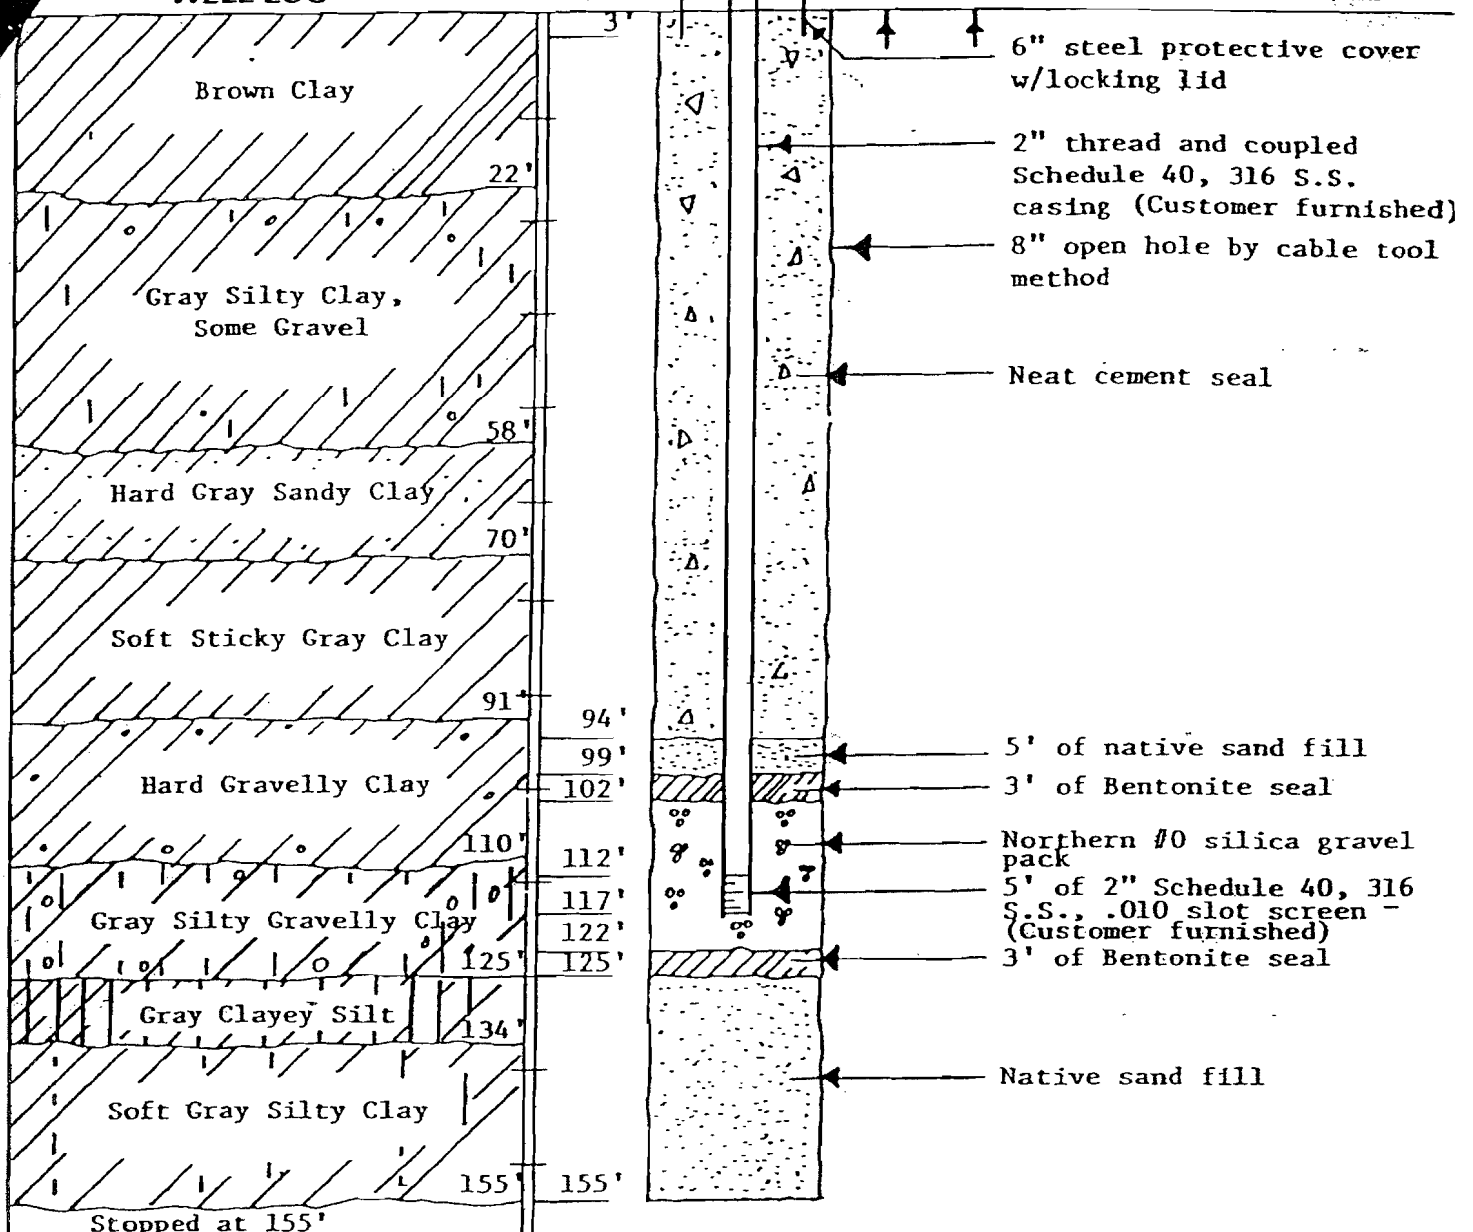 3'
Brown Clay
22'
Gray Silty Clay,
Some Gravel
58'
Hard Gray Sandy Clay
70'
Soft Sticky Gray Clay
91'
Hard Gravelly Clay
110'
Gray Silty Gravelly Clay
125'
Gray Clayey Silt
134'
Soft Gray Silty Clay
155'
Stopped at 155'
94'
99'
102'
112'
117'
122'
125'
155'
6" steel protective cover
w/locking lid
2" thread and coupled
Schedule 40, 316 S.S.
casing (Customer furnished)
8" open hole by cable tool
method
Neat cement seal
5' of native sand fill
3' of Bentonite seal
Northern #0 silica gravel
pack
5' of 2" Schedule 40, 316
S.S., .010 slot screen -
(Customer furnished)
3' of Bentonite seal
Native sand fill